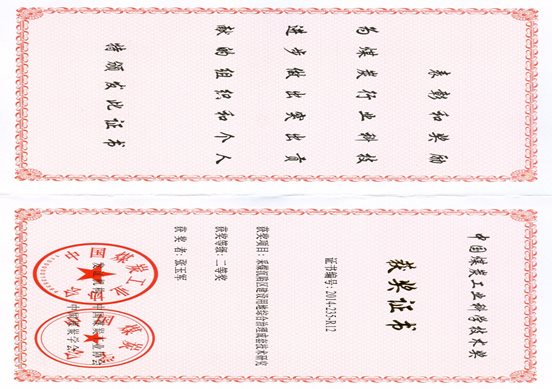 表彰和奖励
为煤炭行业科技
进步做出突出贡
献的组织和个人
特颁发此证书
中国煤炭工业科学技术奖
获奖证书
证书编号：2014-235-R12
获奖项目：采煤沉陷区建设用地综合治理成套技术研究
获奖等级：二等奖
获奖者：张玉军
中国煤炭工业协会
中国煤炭学会